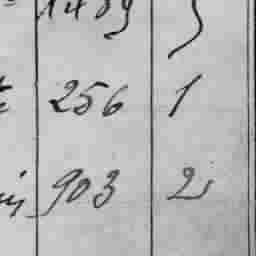 1489
256 1
903 2